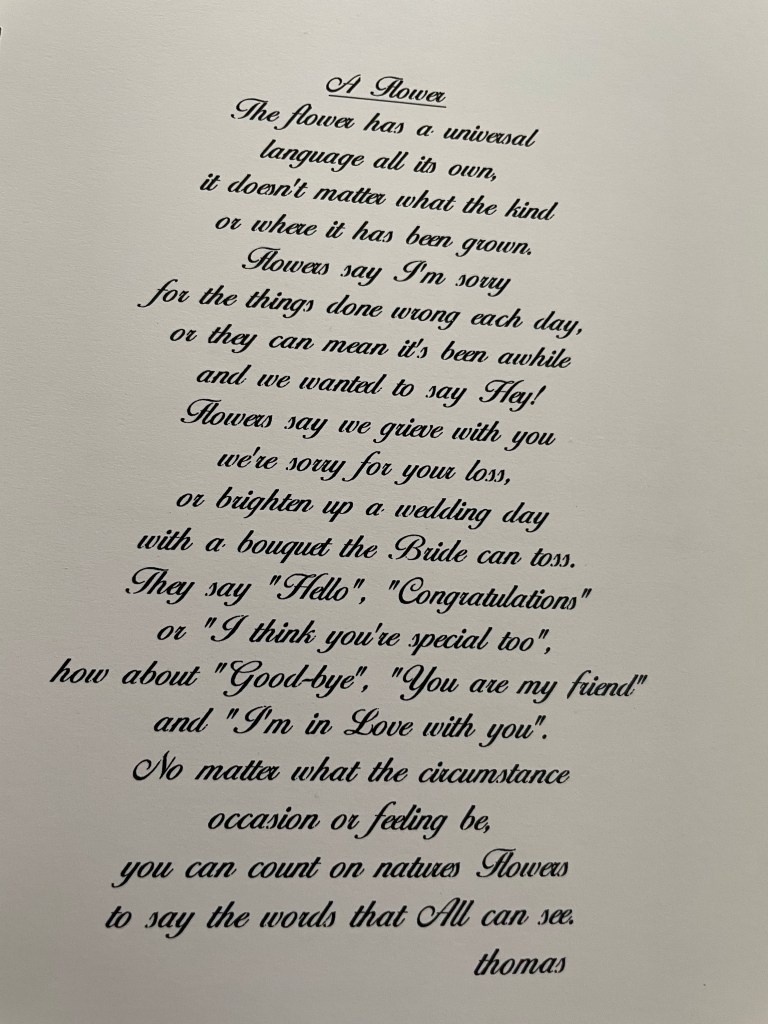 A Flower
The flower has a universal
language all its own,
it doesn't matter what the kind
or where it has been grown.
Flowers say I'm sorry
for the things done wrong each day,
or they can mean it's been awhile
and we wanted to say Hey!
Flowers say we grieve with you
we're sorry for your loss,
or brighten up a wedding day
with a bouquet the Bride can toss.
They say "Hello", "Congratulations"
or "I think you're special too",
how about "Good-bye", "You are my friend"
and "I'm in Love with you".
No matter what the circumstance
occasion or feeling be,
you can count on natures Flowers
to say the words that All can see.
thomas